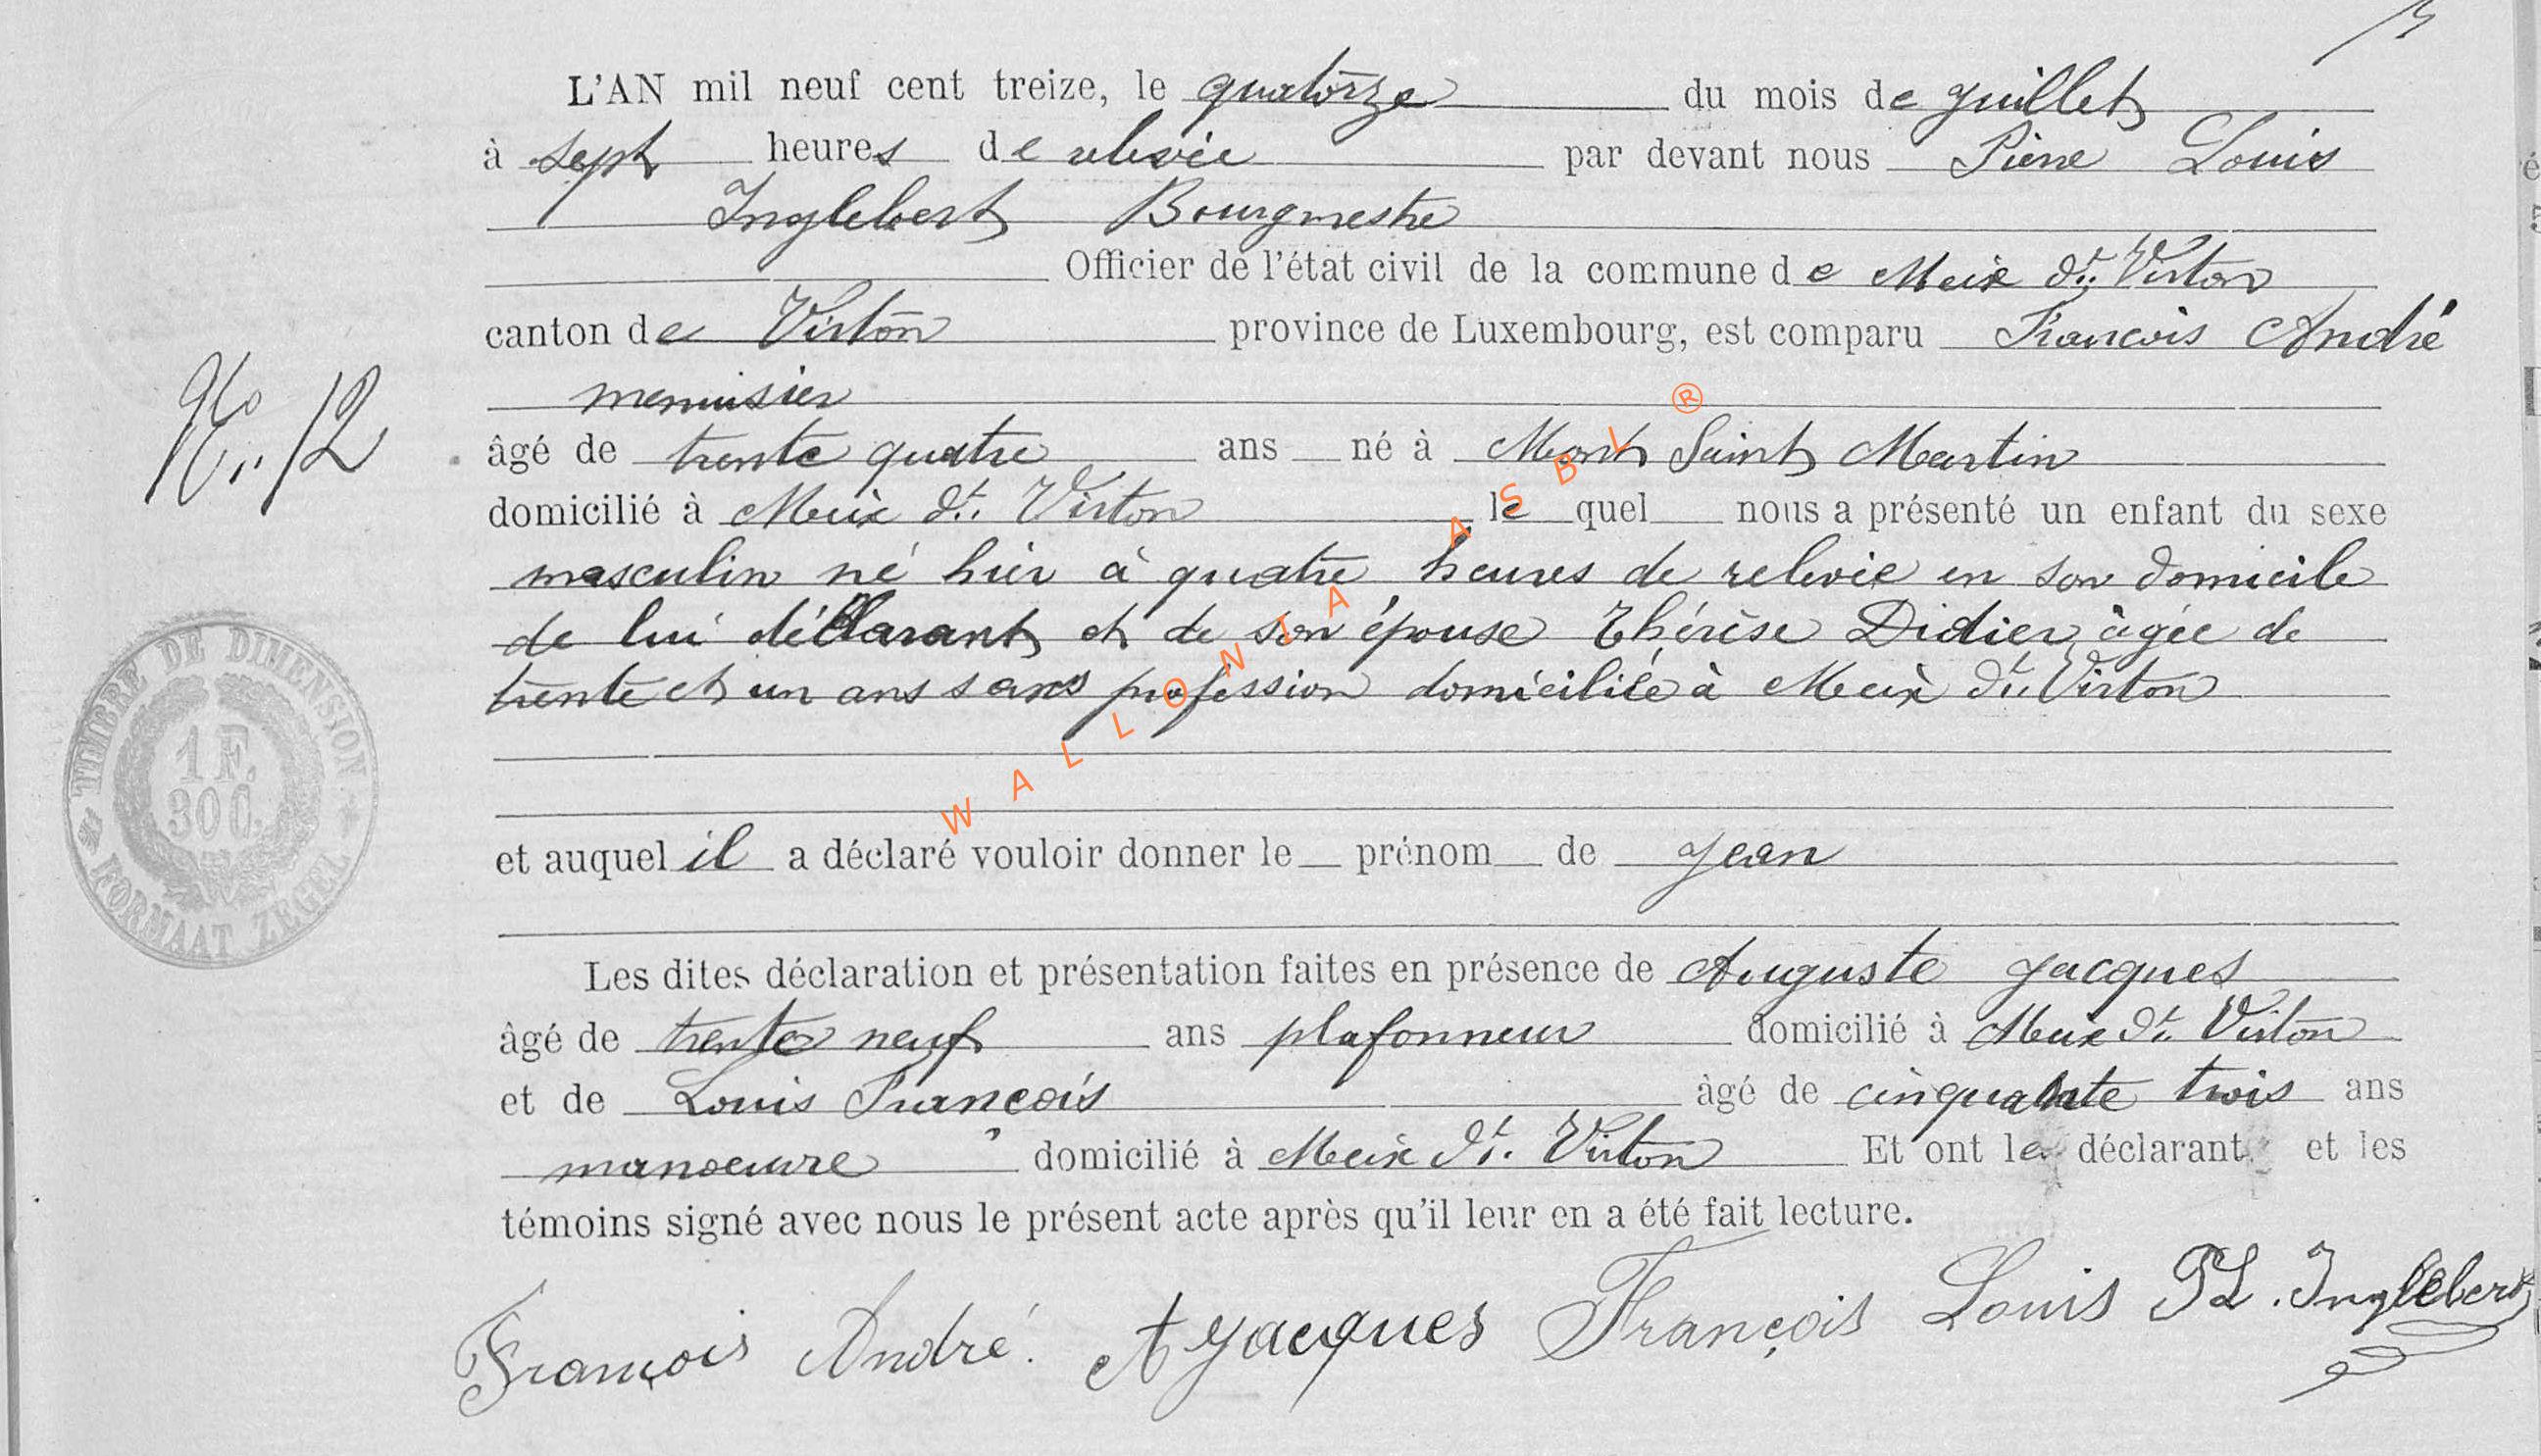 L'AN mil neuf cent treize, le quatorze du mois de juillet
à sept heures de relevée par devant nous Pierre Louis
Inglebert Bourgmestre
Officier de l'état civil de la commune de Meix dt. Virton
canton de Virton province de Luxembourg, est comparu Francois André
menuisier
No. 12
âgé de trente quatre ans né à Mont Saint Martin
domicilié à Meix dt. Virton lequel nous a présenté un enfant du sexe
masculin né hier à quatre heures de relevée en son domicile
de lui déclarant et de son épouse Thérèse Didier, âgée de
trente et un ans sans profession domiciliée à Meix dt. Virton
et auquel il a déclaré vouloir donner le prénom de Jean
Les dites déclaration et présentation faites en présence de Auguste Jacques
âgé de trente neuf ans plafonneur domicilié à Meix dt. Virton
et de Louis François âgé de cinquante trois ans
manoeuvre domicilié à Meix dt. Virton Et ont le déclarant et les
témoins signé avec nous le présent acte après qu'il leur en a été fait lecture.
François André. A Jacques François Louis PL. Inglebert
TIMBRE DE DIMENSION
1 F.
30 C.
FORMAAT ZEGEL
WALLONIA ASBL ®